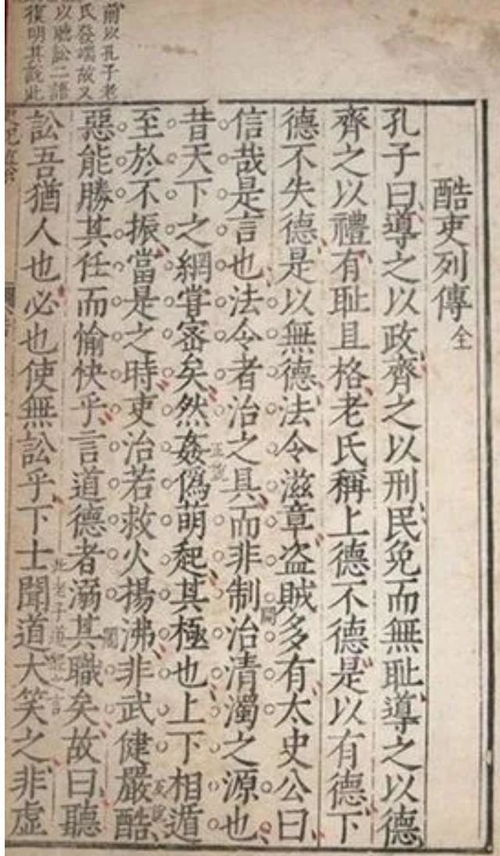 前以孔子老
氏發端故又
以聽訟二語
復明其說此
酷吏列傳全
孔子曰導之以政齊之以刑民免而無耻導之以德
齊之以禮有耻且格老氏稱上德不德是以有德下
德不失德是以無德法令滋章盗賊多有太史公曰
信哉是言也法令者治之具而非制治清濁之源也
正說
昔天下之網嘗密矣然姦僞萌起其極也上下相遁
至於不振當是之時吏治若救火揚沸非武健嚴酷
反說
惡能勝其任而愉快乎言道德者溺其職矣故曰聽
訟吾猶人也必也使無訟乎下士聞道大笑之非虛